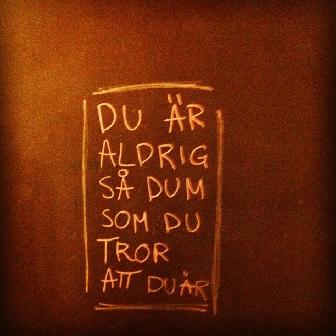 DU ÄR
ALDRIG
SÅ DUM
SOM DU
TROR
ATT DU ÄR